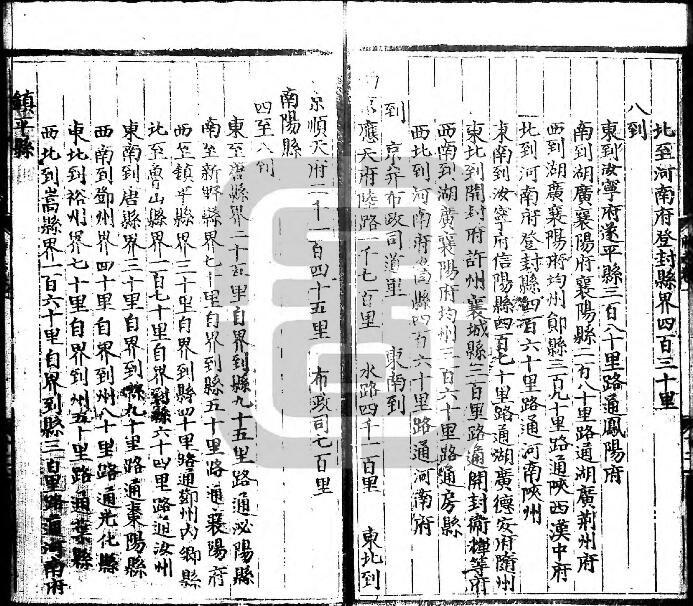 北至河南府登封縣界四百三十里
八到
東到汝寧府遂平縣三百八十里路通鳳陽府
南到湖廣襄陽府襄陽縣二百八十里路通湖廣荆州府
西到湖廣襄陽府均州鄖縣三百九十里路通陜西漢中府
北到河南府登封縣四百六十里路通河南陜州
東南到汝寧府信陽縣四百七十里路通湖廣德安府隨州
東北到開封府許州襄城縣三百里路通開封衞輝等府
西南到湖廣襄陽府均州三百六十里路通房縣
西北到河南府嵩縣四百六十里路通河南府
到 京并布政司道里 東南到
應天府陸路一千七百里 水路四千一百里 東北到
京順天府二千一百四十五里 布政司七百里
南陽縣
四至八到
東至唐縣界二十五里自界到縣九十五里路通泌陽縣
南至新野縣界七十里自界到縣五十里路通襄陽府
西至鎮平縣界三十里自界到縣四十里路通鄧州內鄉縣
北至魯山縣界一百七十里自界到縣六十四里路通汝州
東南到唐縣界三十里自界到縣九十里路通棗陽縣
西南到鄧州界四十里自界到州八十里路通光化縣
東北到裕州界七十里自界到州五十里路通葉縣
西北到嵩縣界一百六十里自界到縣三百里路通河南府
鎮平縣